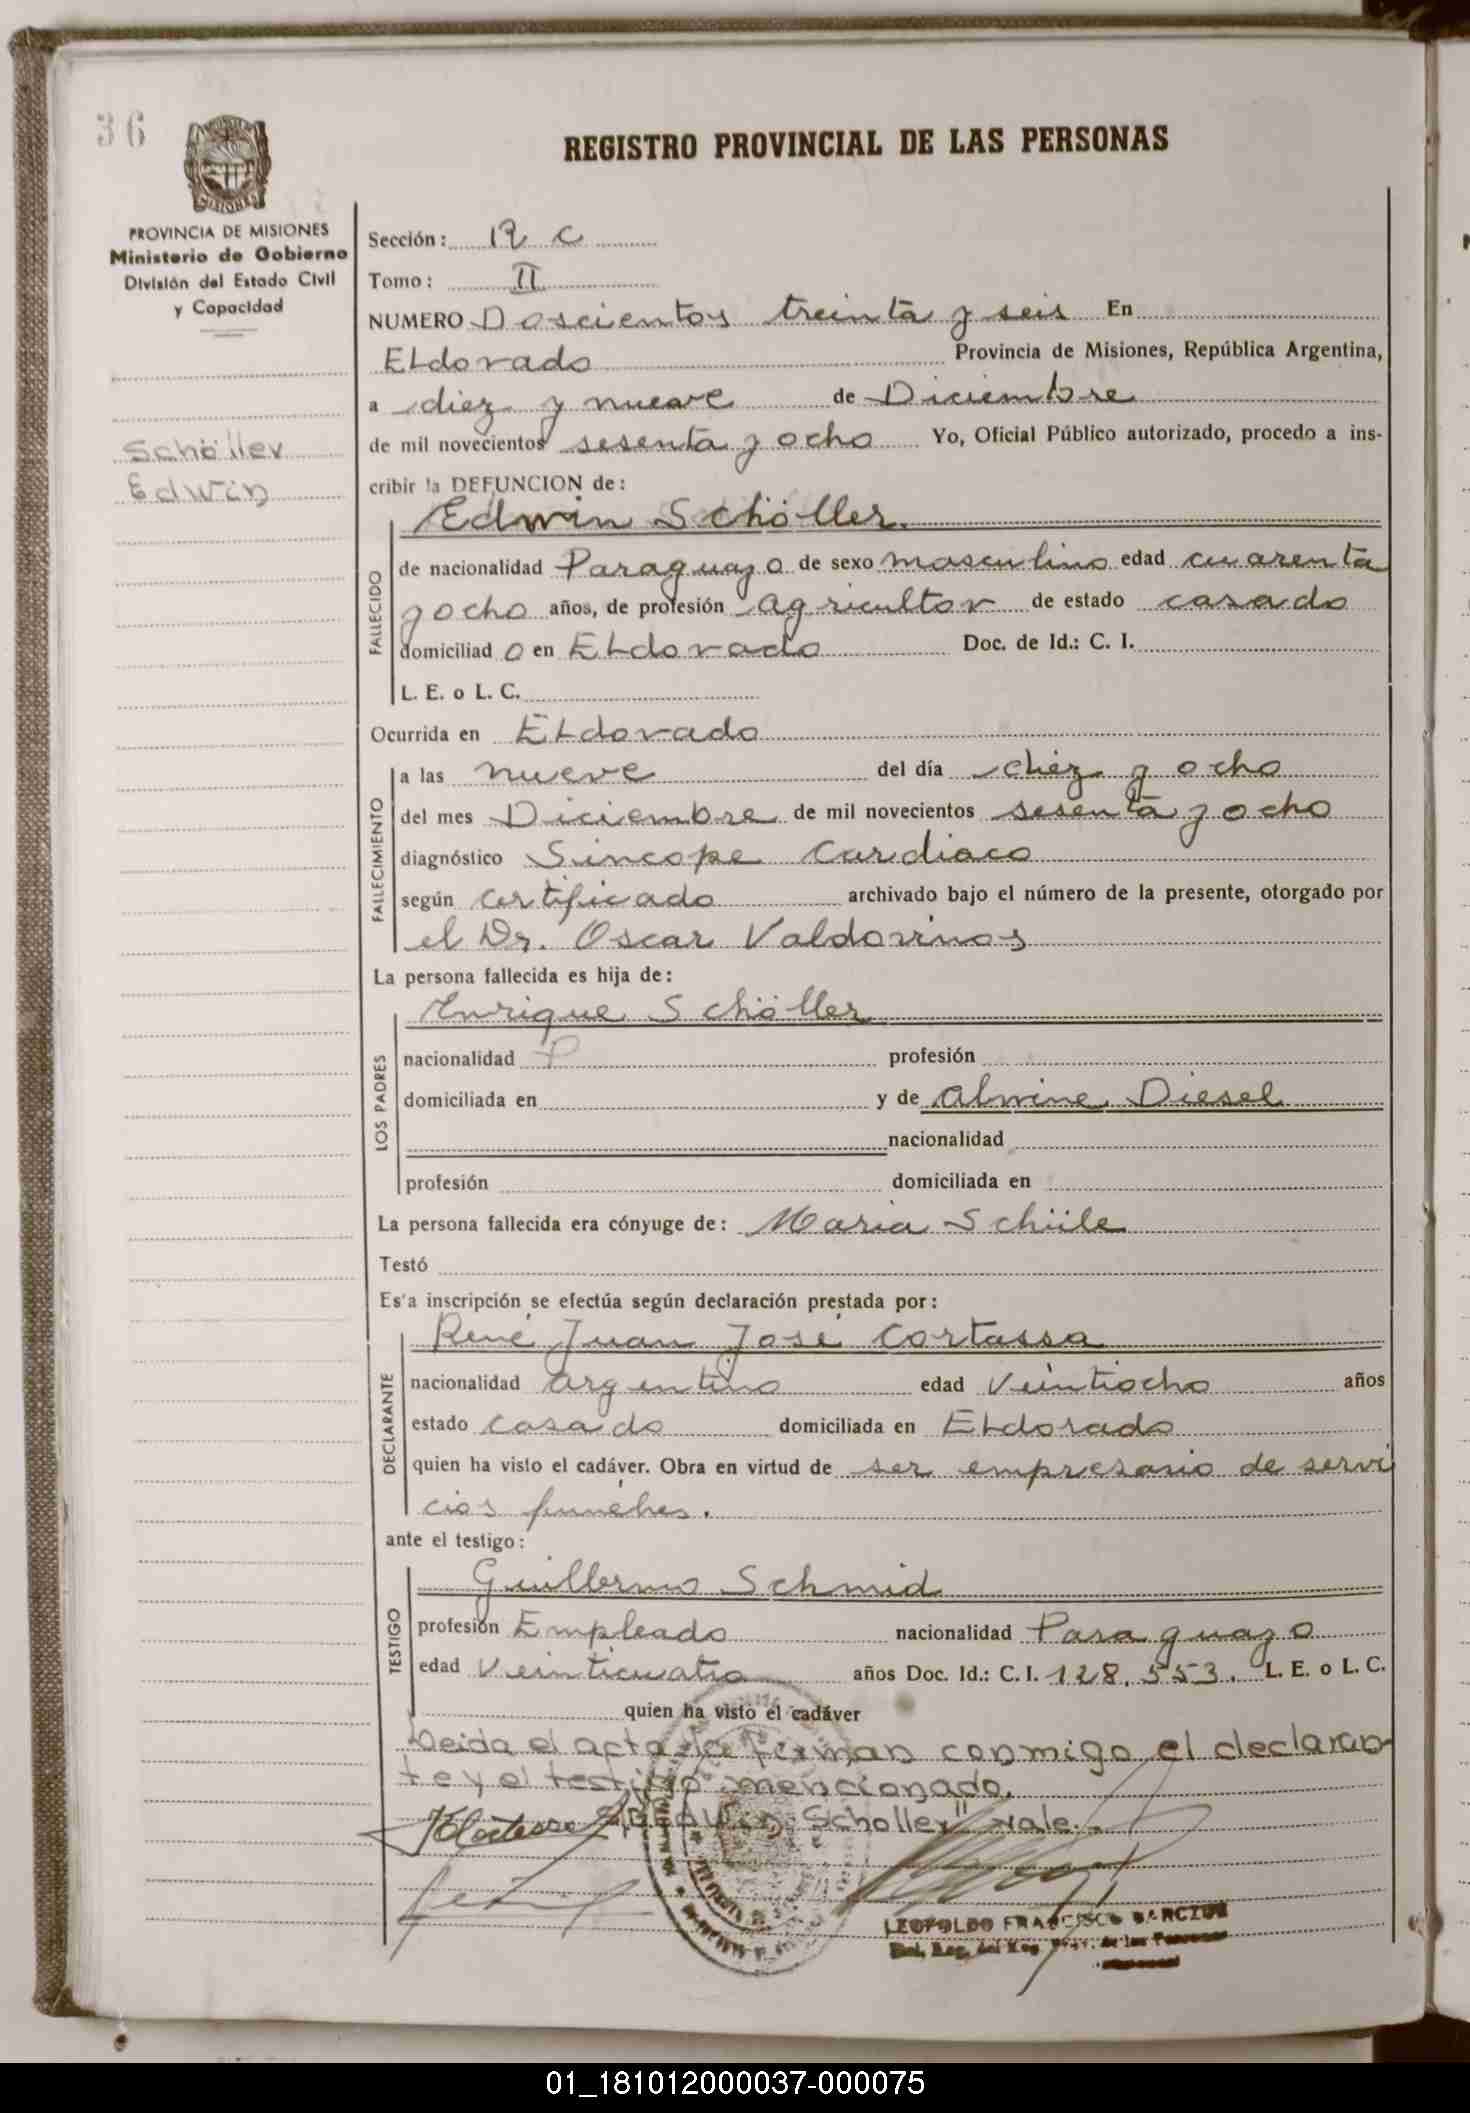 36
REGISTRO PROVINCIAL DE LAS PERSONAS
PROVINCIA DE MISIONES
Ministerio de Gobierno
División del Estado Civil
y Capacidad
Schöller
Edwin
Sección: R C
Tomo: II
NUMERO Doscientos treinta y seis En
Eldorado Provincia de Misiones, República Argentina,
a diez y nueve de Diciembre
de mil novecientos sesenta y ocho Yo, Oficial Público autorizado, procedo a ins-
cribir la DEFUNCION de:
Edwin Schöller.
FALLECIDO
de nacionalidad Paraguayo de sexo masculino edad cuarenta
y ocho años, de profesión agricultor de estado casado
domiciliad o en Eldorado Doc. de Id.: C. I.
L. E. o L. C.
Ocurrida en Eldorado
FALLECIMIENTO
a las nueve del día diez y ocho
del mes Diciembre de mil novecientos sesenta y ocho
diagnóstico Sincope Cardiaco
según certificado archivado bajo el número de la presente, otorgado por
el Dr. Oscar Valdovinos
La persona fallecida es hija de:
Enrique Schöller
LOS PADRES
nacionalidad P profesión
domiciliada en y de Alwine Diesel
nacionalidad
profesión domiciliada en
La persona fallecida era cónyuge de: Maria Schüle
Testó
Es'a inscripción se efectúa según declaración prestada por:
René Juan José Cortassa
DECLARANTE
nacionalidad argentino edad veintiocho años
estado casado domiciliada en Eldorado
quien ha visto el cadáver. Obra en virtud de ser empresario de servi
cios fúnebres.
ante el testigo:
Guillermo Schmid
TESTIGO
profesión Empleado nacionalidad Paraguayo
edad veinticuatro años Doc. Id.: C. I. 128.553. L. E. o L. C.
quien ha visto el cadáver
Leida el acta la firman conmigo el declaran-
te y el testigo mencionado.
Schöller" vale.
LEOPOLDO FRANCISCO
01_181012000037-000075